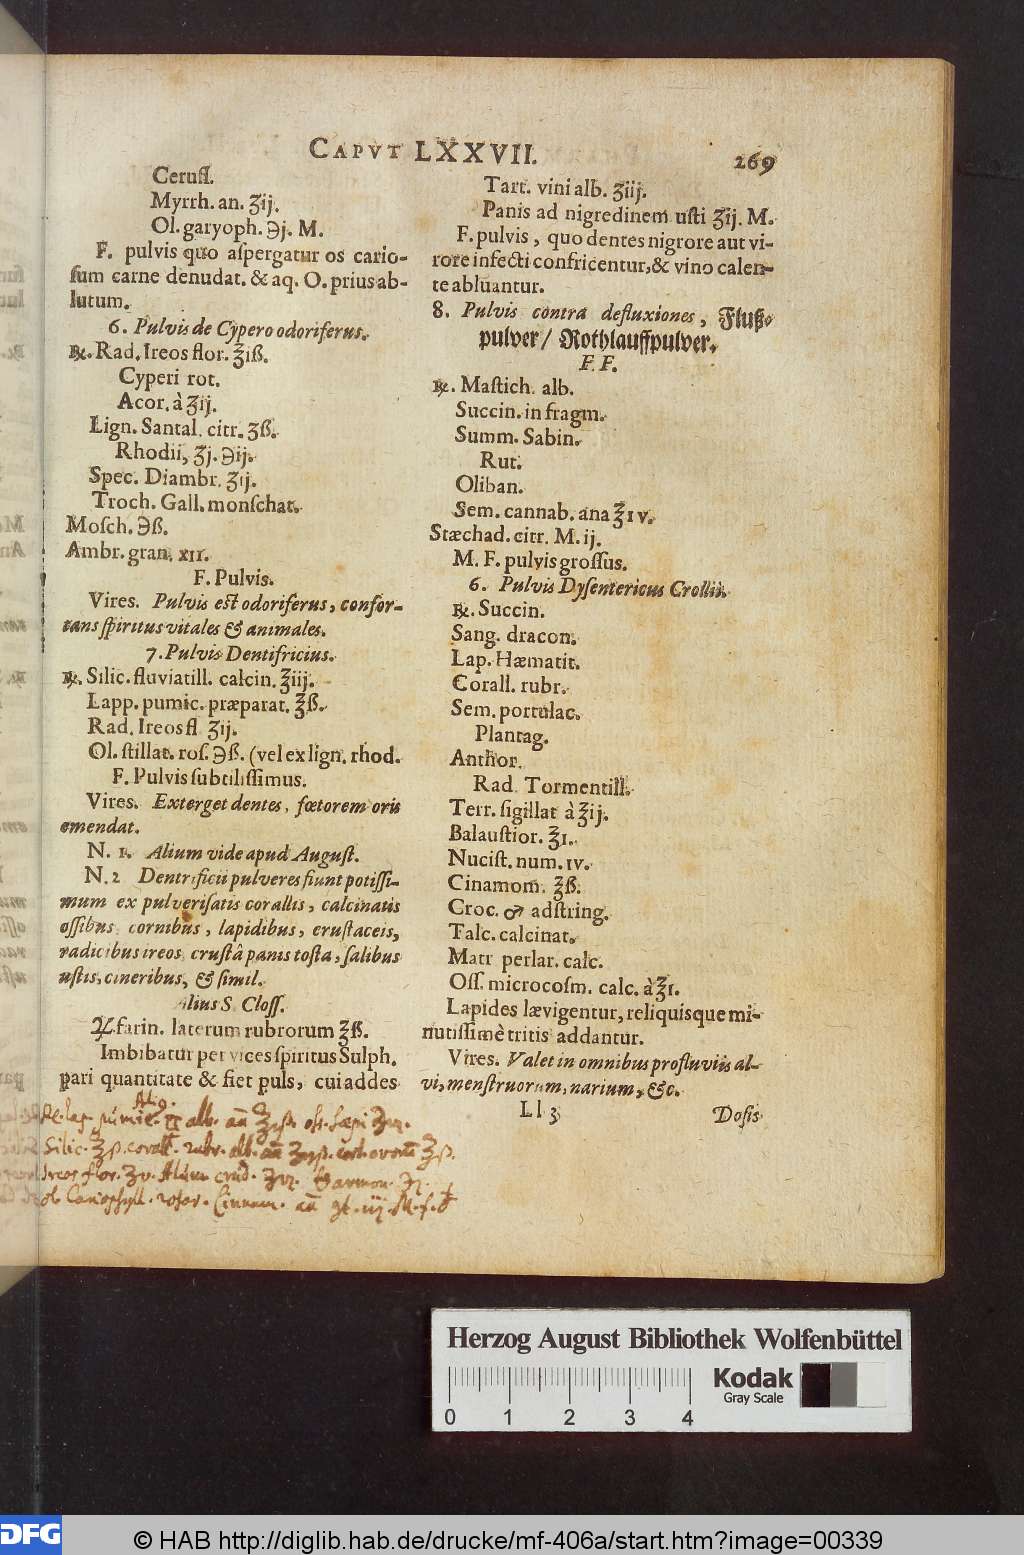 CAPVT LXXVII. 269
Ceruſſ.
Myrrh. an. ʒij.
Ol. garyoph. ℈j. M.
F. pulvis quo aſpergatur os cario-
ſum carne denudat. & aq. O. prius ab-
lutum.
6. Pulvis de Cypero odoriferus.
℞. Rad. Ireos flor. ℥iß.
Cyperi rot.
Acor. à ʒij.
Lign. Santal. citr. ʒß.
Rhodii, ʒj. ℈ij.
Spec. Diambr. ʒij.
Troch. Gall. monſchat.
Moſch. ℈ß.
Ambr. gran. xii.
F. Pulvis.
Vires. Pulvis eſt odoriferus, confor-
tans ſpiritus vitales & animales.
7. Pulvis Dentifricius.
℞. Silic. fluviatill. calcin. ℥iij.
Lapp. pumic. præparat. ℥ß.
Rad. Ireos fl ʒij.
Ol. ſtillat. roſ. ℈ß. (vel ex lign. rhod.
F. Pulvis subtiliſſimus.
Vires. Exterget dentes, fœtorem oris
emendat.
N. 1. Alium vide apud Auguſt.
N. 2 Dentrificii pulveres fiunt potiſſi-
mum ex pulveriſatis corallis, calcinatis
oſſibus, cornibus, lapidibus, cruſtaceis,
radicibus ireos, cruſtâ panis toſta, ſalibus
uſtis, cineribus, & ſimil.
Alius S. Cloſſ.
♃. farin. laterum rubrorum ℥ß.
Imbibatur per vices ſpiritus Sulph.
pari quantitate & fiet puls, cui addes
Tart. vini alb. ʒiij.
Panis ad nigredinem uſti ʒij. M.
F. pulvis, quo dentes nigrore aut vi-
rore infecti confricentur, & vino calen-
te abluantur.
8. Pulvis contra defluxiones, Fluß-
pulver / Rothlauffpulver.
F. F.
℞. Maſtich. alb.
Succin. in fragm.
Summ. Sabin.
Rut.
Oliban.
Sem. cannab. ana ℥iv.
Stæchad. citr. M. ij.
M. F. pulvis groſſus.
6. Pulvis Dyſentericus Crollii.
℞. Succin.
Sang. dracon.
Lap. Hæmatit.
Corall. rubr.
Sem. portulac.
Plantag.
Anthor.
Rad. Tormentill.
Terr. ſigillat à ℥ij.
Balauſtior. ℥i.
Nuciſt. num. iv.
Cinamom. ℥ß.
Croc. ♂ adſtring.
Talc. calcinat.
Matr perlar. calc.
Oſſ. microcoſm. calc. à ℥i.
Lapides lævigentur, reliquisque mi-
nutiſſimè tritis addantur.
Vires. Valet in omnibus profluviis al-
vi, menſtruorum, narium, &c.
Ll 3 Doſis
lap. pumic. alb.
Silic. corall. rubr. alb.
Ireos flor. Alum crud.
Cariophyll.
Herzog August Bibliothek Wolfenbüttel
Kodak
Gray Scale
0 1 2 3 4
DFG
© HAB http://diglib.hab.de/drucke/mf-406a/start.htm?image=00339